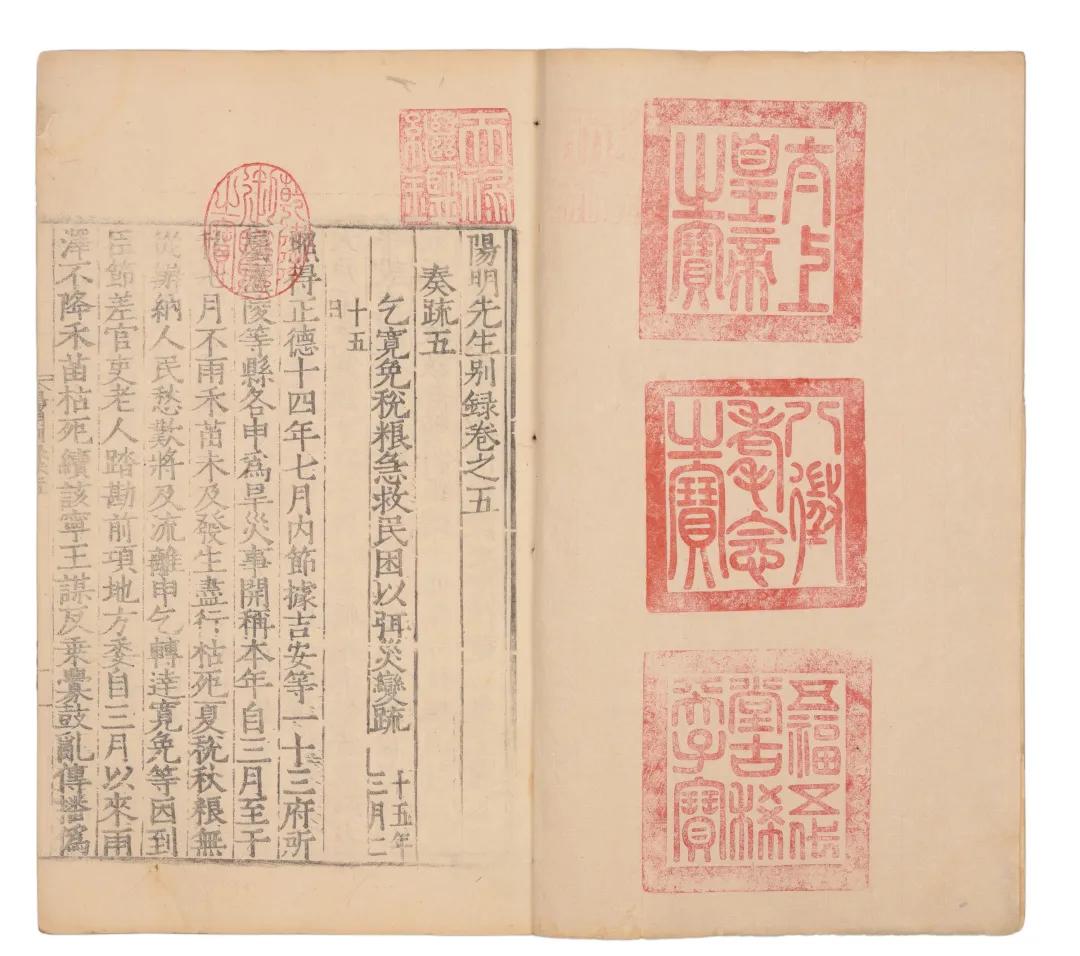 太上
皇帝
之寶
八徵
耄念
之寶
五福五代
堂古稀
天子寶
天祿
繼鑑
乾隆
御覽
之寶
陽明先生别録卷之五
奏疏五
乞寬免稅粮急救民困以弭災變疏 十五年三月二
十五日
照得正德十四年七月內節據吉安等一十三府所
屬廬陵等縣各申爲旱災事開稱本年自三月至于
七月不雨禾苗未及發生盡行枯死夏稅秋粮無
從辦納人民愁歎將及流離申乞轉達寬免等因到
臣節差官吏老人踏勘前項地方委自三月以來雨
澤不降禾苗枯死續該寧王謀反乗釁鼓亂傳播爲